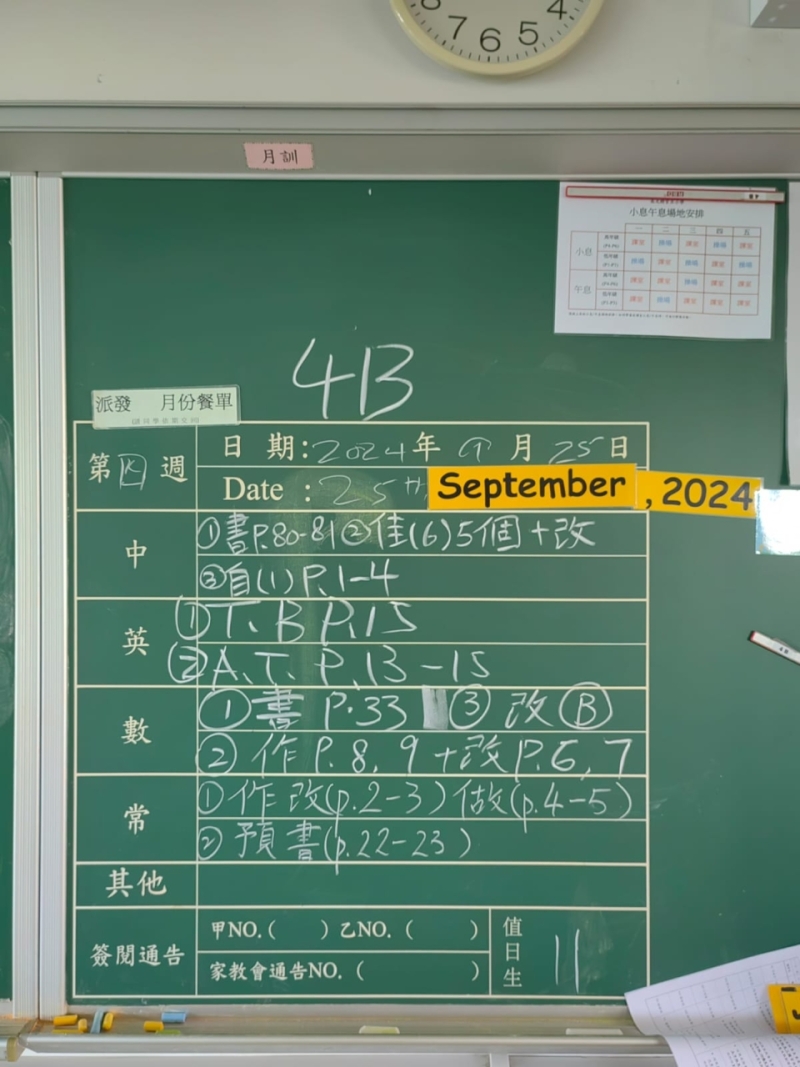 8 7 6 5 4
月訓
小息午息場地安排
一 二 三 四 五
小息
午息
4B
派發 月份餐單
第四週
日期:2024年9月25日
Date : 25th September , 2024
中
①書P.80-81②佳(6)5個+改
③自(1)P.1-4
英
①T.B P.15
②A.T. P.13-15
數
①書 P.33 ③改Ⓑ
②作P.8,9+改P.6,7
常
①作改(p.2-3)做(p.4-5)
②預書(p.22-23)
其他
簽閱通告
甲NO.( )乙NO.( )
家教會通告NO.( )
值日生
11